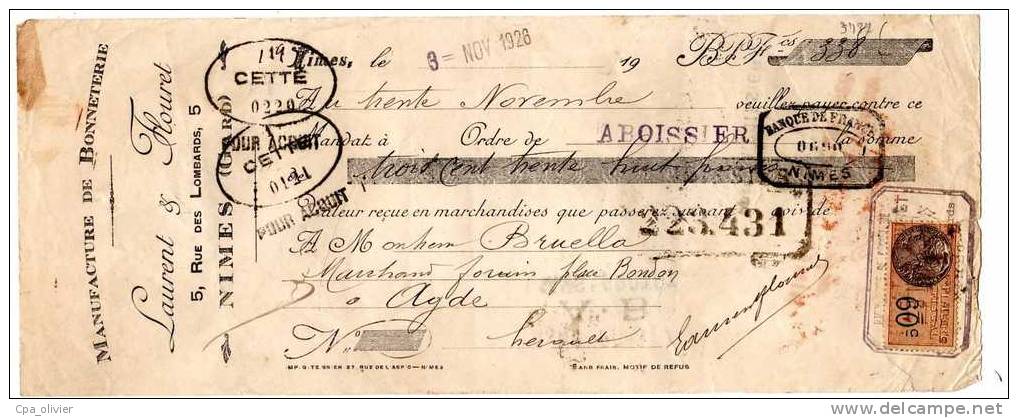 MANUFACTURE DE BONNETERIE
Laurent & Flouret
5, RUE DES LOMBARDS, 5
NIMES (GARD)
119
CETTE
0220
POUR ACQUIT
CETTE
POUR ACQUIT
Nimes, le 3 = NOV 1926 19 B.P.F.cs 338
Au trente Novembre veuillez payer contre ce
Mandat à Ordre de ABOISSIER la somme
trois cent trente huit francs
BANQUE DE FRANCE
NIMES
Valeur reçue en marchandises que passerez suivant avis de
223.431
A Monsieur Bruella
Marchand forain place Bondon
à Agde
N° herault
60c
SANS FRAIS, MOTIF DE REFUS
Cpa_olivier
delcampe.net